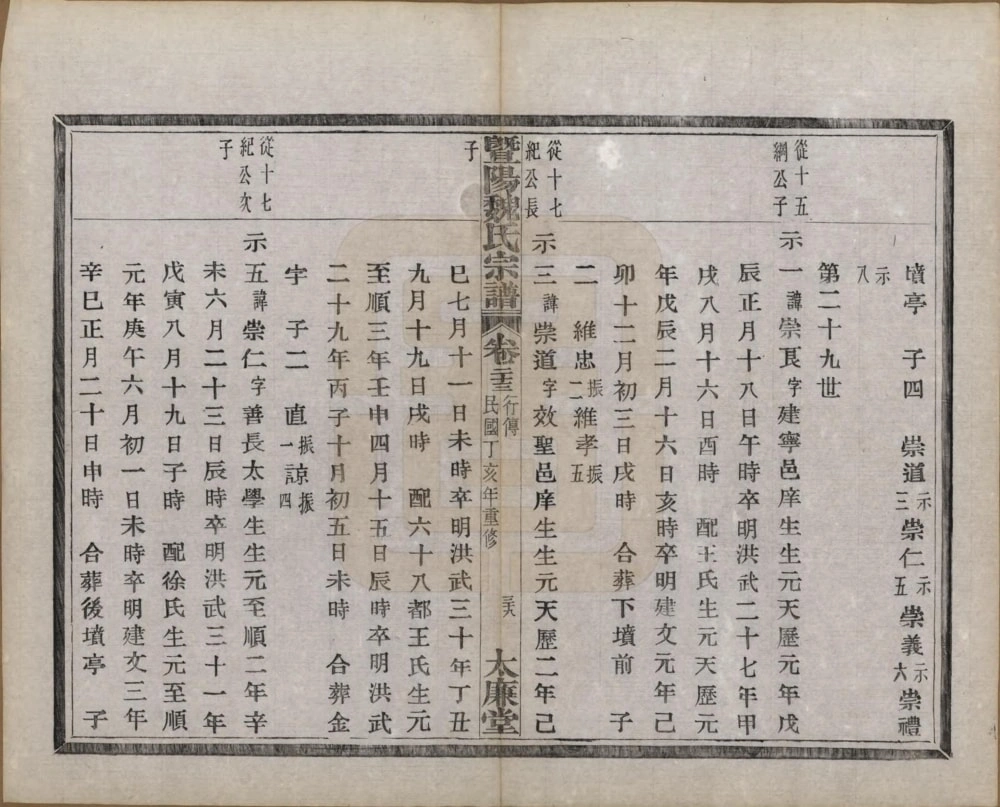 墳亭　子四　崇道示三崇仁示五崇義示六崇禮
示八
第二十九世
從十五綱公子
示一諱崇良字建寧邑庠生生元天歷元年戊
辰正月十八日午時卒明洪武二十七年甲
戌八月十六日酉時　配王氏生元天歷元
年戊辰二月十六日亥時卒明建文元年己
卯十二月初三日戌時　合葬下墳前　子
二　維忠振二維孝振五
從十七紀公長子
示三諱崇道字效聖邑庠生生元天歷二年己
巳七月十一日未時卒明洪武三十年丁丑
九月十九日戌時　配六十八都王氏生元
至順三年壬申四月十五日辰時卒明洪武
二十九年丙子十月初五日未時　合葬金
字　子二　直振一諒振四
從十七紀公次子
示五諱崇仁字善長太學生生元至順二年辛
未六月二十三日辰時卒明洪武三十一年
戊寅八月十九日子時　配徐氏生元至順
元年庚午六月初一日未時卒明建文三年
辛巳正月二十日申時　合葬後墳亭　子
暨陽魏氏宗譜　卷二十三　行傳　民國丁亥年重修　三十六　太廉堂